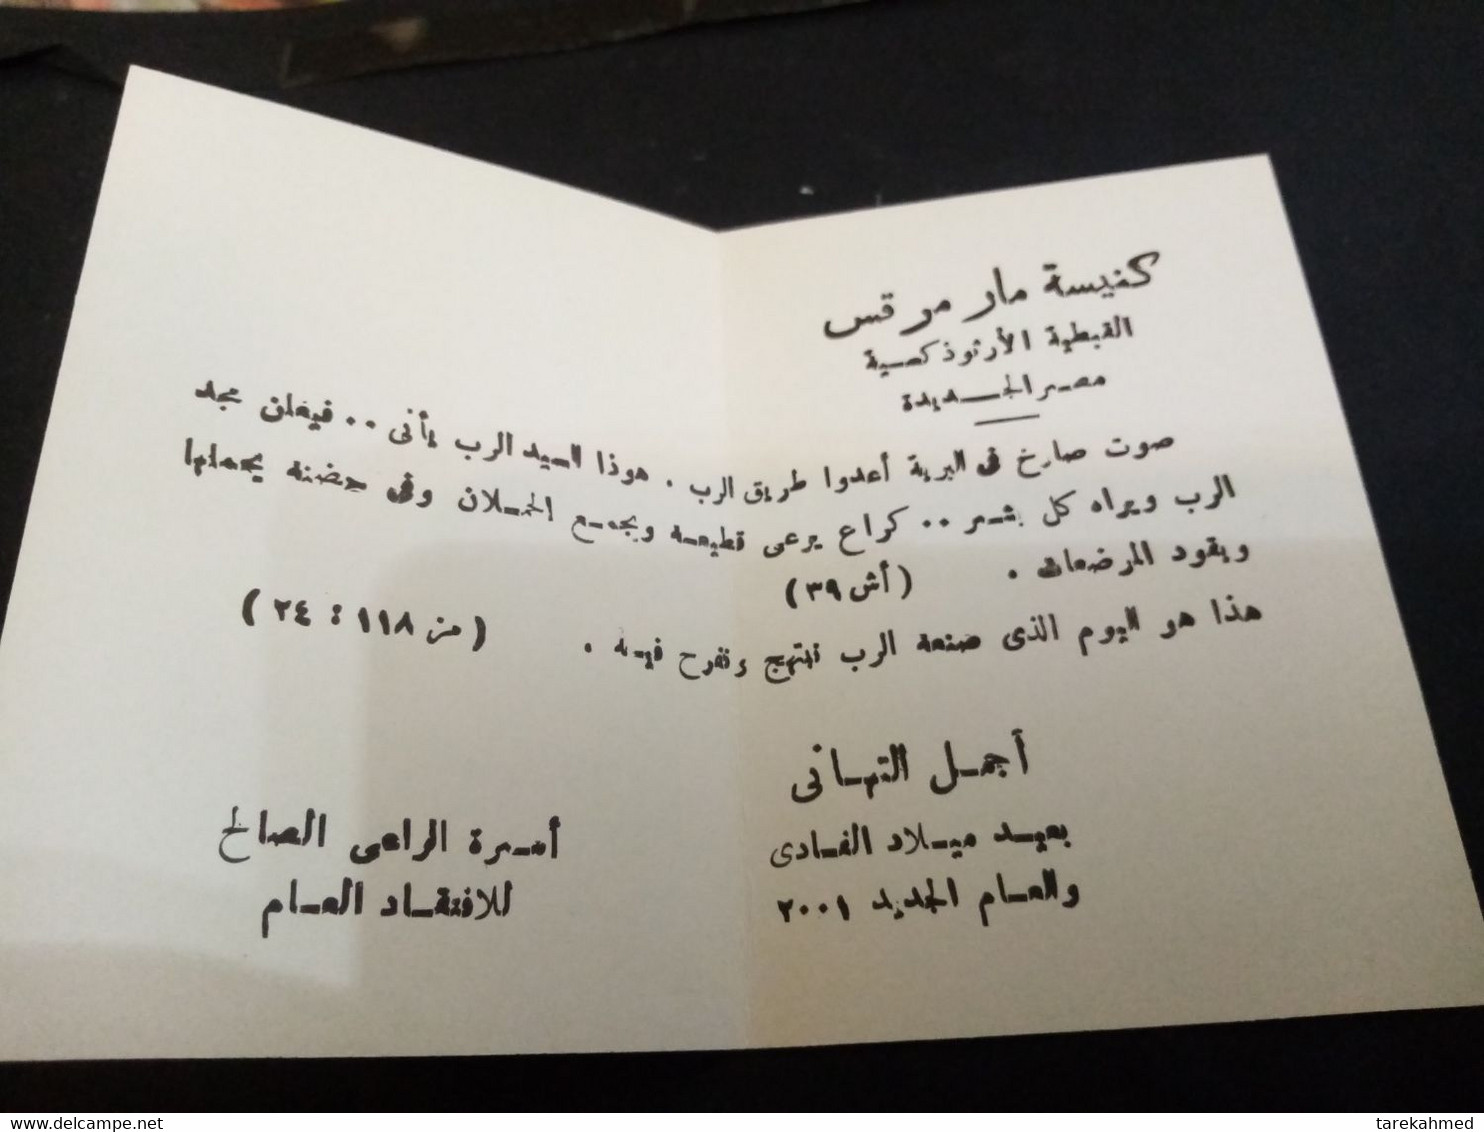 كنيسة مار مرقس
القبطية الأرثوذكسية
مصر الجديدة
صوت صارخ فى البرية أعدوا طريق الرب . هوذا السيد الرب يأتى .. فيعلن مجد
الرب ويراه كل بشر .. كراع يرعى قطيعه ويجمع الحملان وفى حضنه يحملها
ويقود المرضعات . (أش ٣٩)
هذا هو اليوم الذى صنعه الرب نبتهج ونفرح فيه . (مز ١١٨ : ٢٤)
أجمل التهانى
بعيد ميلاد الفادى
والعام الجديد ٢٠٠١
أسرة الراعى الصالح
للافتقاد العام
delcampe.net
tarekahmed